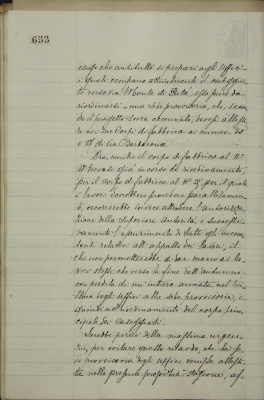 653
essso che anzitutto si prepari agli Uffici
i quali occupano attualmente il caseggia-
to verso via Monte di Pietà, esso pure da
riordinarsi - una sede provvisoria, che secon-
do il progetto sovra accennato, avrebbe allogg-
io nei due Corpi di fabbrica ai numeri 30
e 37 di via Barbaroux
Ora, mentre il corpo di fabbrica al N°
37 trovasi già in corso di riordinamento,
per il corpo di fabbrica al N° 3 per il quale
i lavori dovrebbero procedere parallelamen-
te, occorrerebbe invece attendere l'autorizza-
zione della Superiore Autorità, e successi-
vamente l'esaurimento di tutti gli incom-
benti relativi all'appalto dei lavori, il
che non permetterebbe di por mano ai la-
vori stessi che verso la fine dell'autunno
con perdita di un'intera annata nel tra-
sloco degli uffici alla sede provvisoria, e
quindi nel riordinamento del corpo prin-
cipale dei caseggiati.
Sarebbe perciò della massima urgen-
za, per evitare questo ritardo, che la se-
de provvisoria degli uffici venisse allesti-
ta nella presente propizia stagione, af-